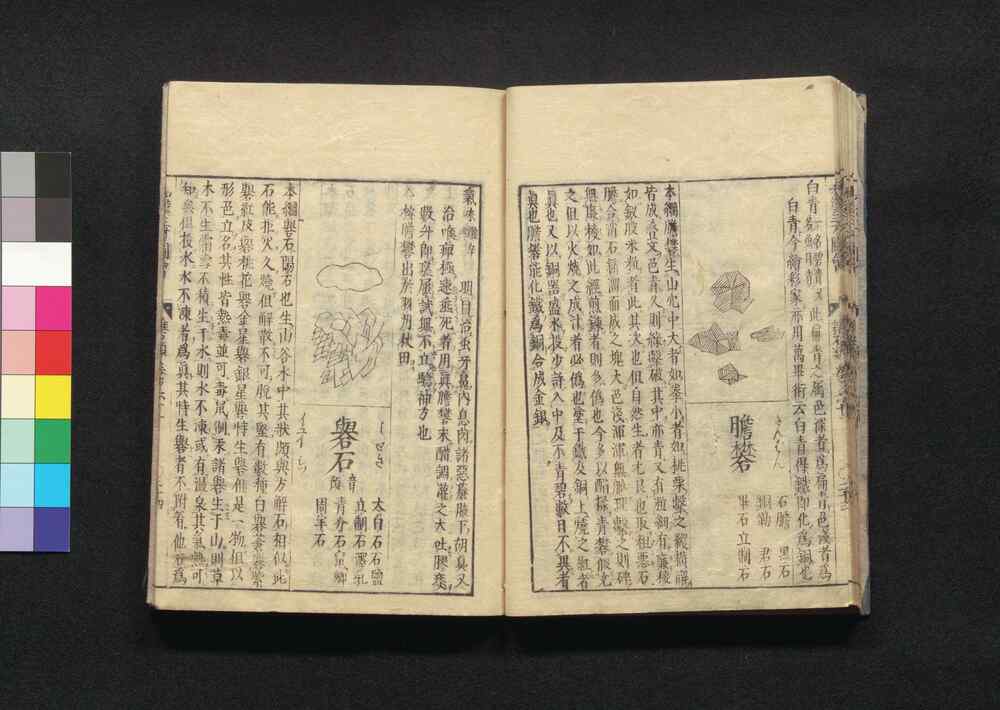 白青今繪彩家亦用萬畢術云白青得鐵即化為銅也
膽礬
たんはん
石膽
黑石
銅勒
君石
畢石
立制石
本綱膽礬生山穴中大者如拳小者如桃栗擊之縱橫解
皆成疊文色青久則綠擊破其中亦青又有粗細有廉稜
如釵股米粒者此其次也但自然生者尤良也取粗惡石
膽合消石銷溜而成之塊大色淺渾渾無脉理擊之則碎
無廉稜如此經煎鍊者則多偽也今多以醋揉青礬假充
之但以火燒之成汁者必偽也塗于鐵及銅上燒之紅者
真也又以銅器盛水投少許入中及不青碧數日不異者
真也膽礬能化鐵為銅合成金銀
明目治虫牙鼻內息肉諸惡瘡腋下胡臭又
治喉痺極速垂死者用真膽礬末醋調灌之大吐膠痰
數升即瘥屢試無不立驗神方也
桉膽礬出於羽州秋田
礜石
音預
よせき
太白石
立制石
青分石
固羊石
石鹽
澤乳
鼠鄉
本綱礜石陽石也生山谷水中其狀頗與方解石相似此
石能拒火久燒但解散不可脫其堅有數種白礜蒼礜紫
礜紅皮礜桃花礜金星礜銀星礜特生礜俱是一物但以
形色立名其性皆熱毒並可毒鼠制汞諸礜生于山則草
木不生霜雪不積生于水則水不凍或有溫泉其氣熱可
知矣但投水水不凍者為真其特生礜者不附着他石為